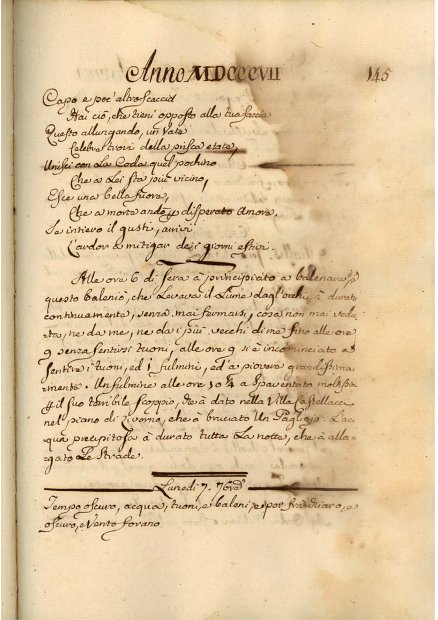 Anno MDCCCVII 145
Capo e poc' altro scaccia
Hai ciò, che tieni opposto alla tua faccia
Questo allungando, un Vate
Celebre trovi della prisca etate,
Unisci con La Coda quel pochino
Che a Lei sta più vicino,
Esce una bella fuore,
Che a morte andò p disperato Amore.
Se intiero il gusti, arrivi
L'ardor a mitigar de i giorni estivi.
Alle ore 6 di sera à principiato a balenare, p
questo balenio, che Levava il Lume dagl'occhi, à durato
continuamente, senza mai fermarsi, cosa non mai vedu-
ta, ne da me, ne da i più vecchi di me fino alle ore
9 senza sentirsi tuoni, alle ore 9 si è incominciato a
sentire i tuoni, ed i fulmini, ed a piovere grandissima-
mente. Un fulmine alle ore 10 ¼ à spaventato moltissimo
p il suo terribile scoppio, ed à dato nella Villa
nel piano di Livorno, che à bruciato Un Pagliajo. L'ac-
qua precipitosa à durato tutta La notte, che à alla-
gato Le Strade.
Lunedì 7. 7bre
Tempo oscuro, acqua, tuoni, e baleni, e poi fra chiaro, e
oscuro, e Vento